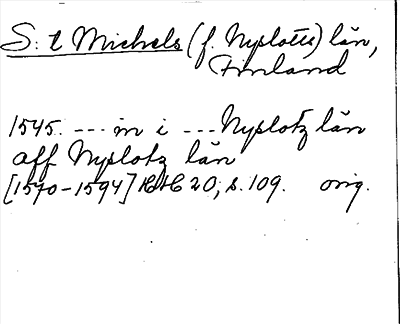 S:t Michels (f. Nyslotts) län,
Finland
1545. --- in i --- Nyslotz län
aff Nyslotz län
[1570-1594] KAC 20, s. 109. orig.